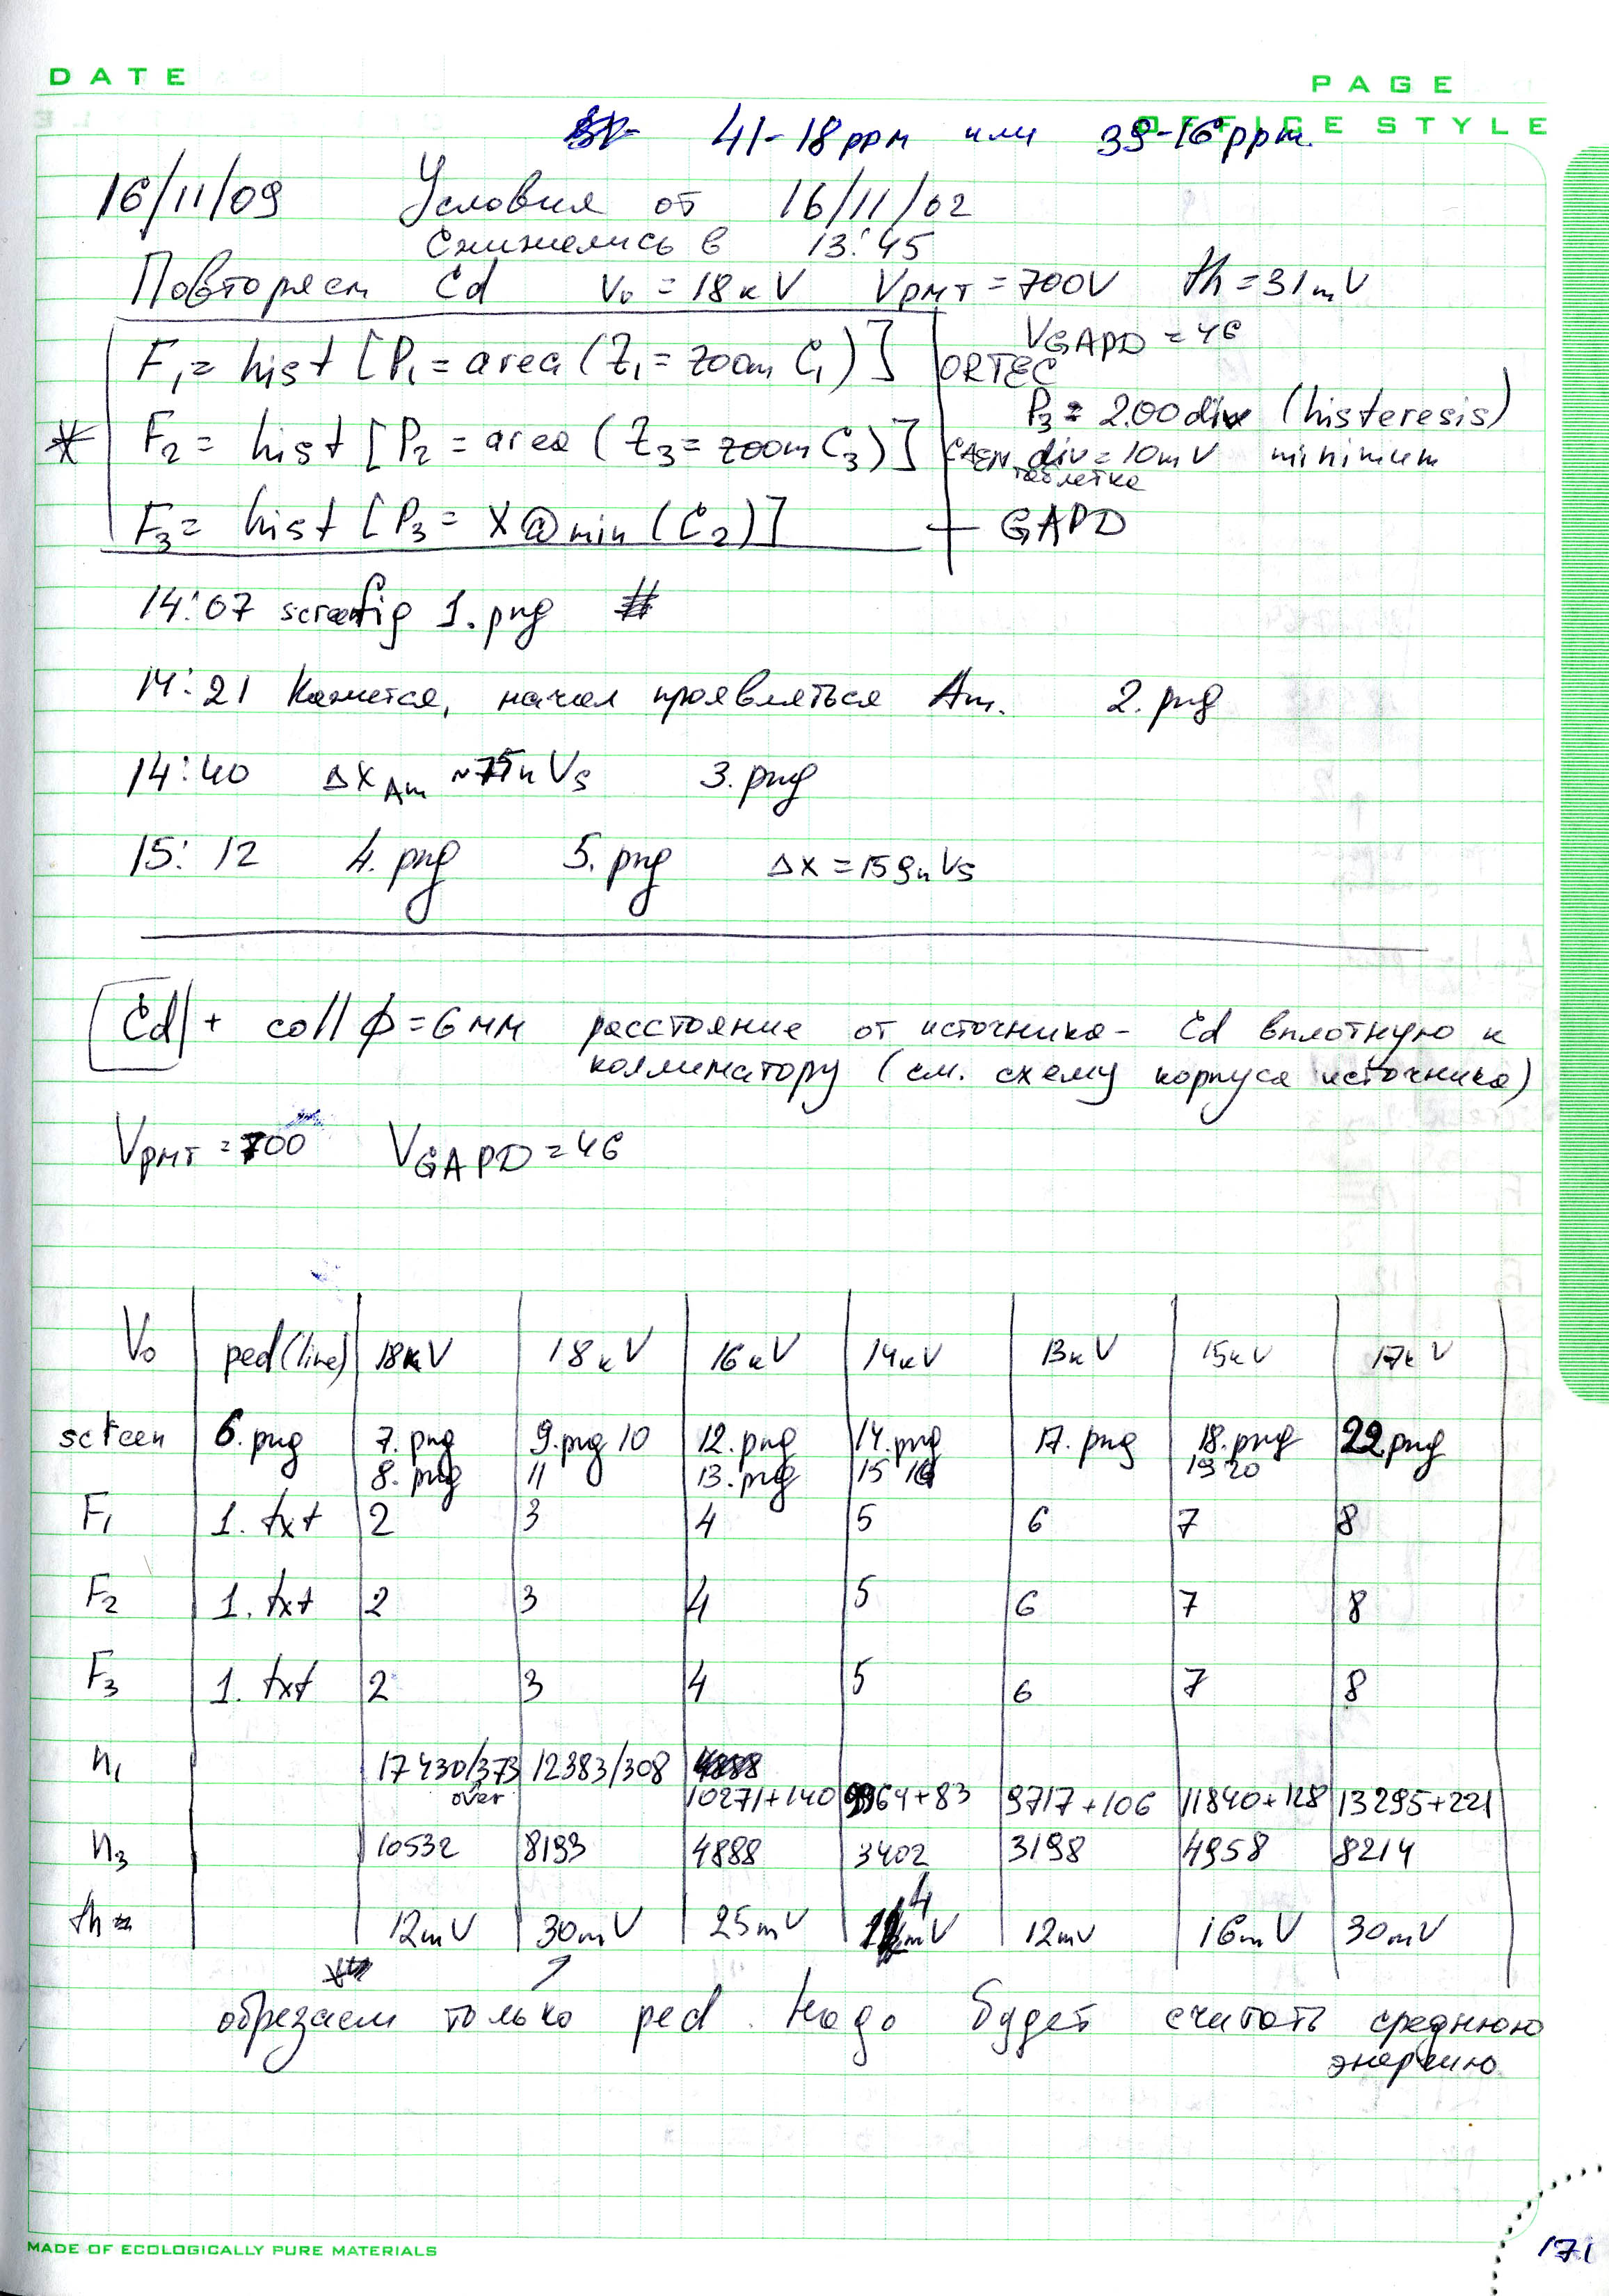 DATE
PAGE
OFFICE STYLE
41-18ppm или 39-16ppm.
16/11/09 Условия от 16/11/02
Снижались в 13:45
Повторяем Cd V₀ = 18кV VPMT = 700V th = 31mV
VGAPD = 46
F₁ = hist [P₁ = area (Z₁ = zoom C₁)] ORTEC
P₃ = 2.00 div (histeresis)
* F₂ = hist [P₂ = area (Z₃ = zoom C₃)] CAEN div = 10mV minimum
таблетка
F₃ = hist [P₃ = X@min (C₂)] GAPD
14:07 1.png #
14:21 Кажется, начал проявляться Am. 2.png
14:40 ΔX Am ~75nVs 3.png
15:12 4.png 5.png ΔX = 159nVs
Cd + coll ϕ = 6мм расстояние от источника - Cd вплотную к
коллиматору (см. схему корпуса источника)
VPMT = 700 VGAPD = 46
V₀ ped(line) 18кV 18кV 16кV 14кV 13кV 15кV 17кV
screen 6.png 7.png 9.png 10 12.png 14.png 17.png 18.png 22.png
8.png 11 13.png 15 16 19 20
F₁ 1.txt 2 3 4 5 6 7 8
F₂ 1.txt 2 3 4 5 6 7 8
F₃ 1.txt 2 3 4 5 6 7 8
n₁ 17430/373 12383/308
over 10271+140 9964+83 9717+106 11840+128 13295+221
n₃ 10532 8193 4888 3402 3198 4958 8214
th = 12mV 30mV 25mV 14mV 12mV 16mV 30mV
обрезаем только ped. Надо будет считать среднюю
энергию
MADE OF ECOLOGICALLY PURE MATERIALS
171